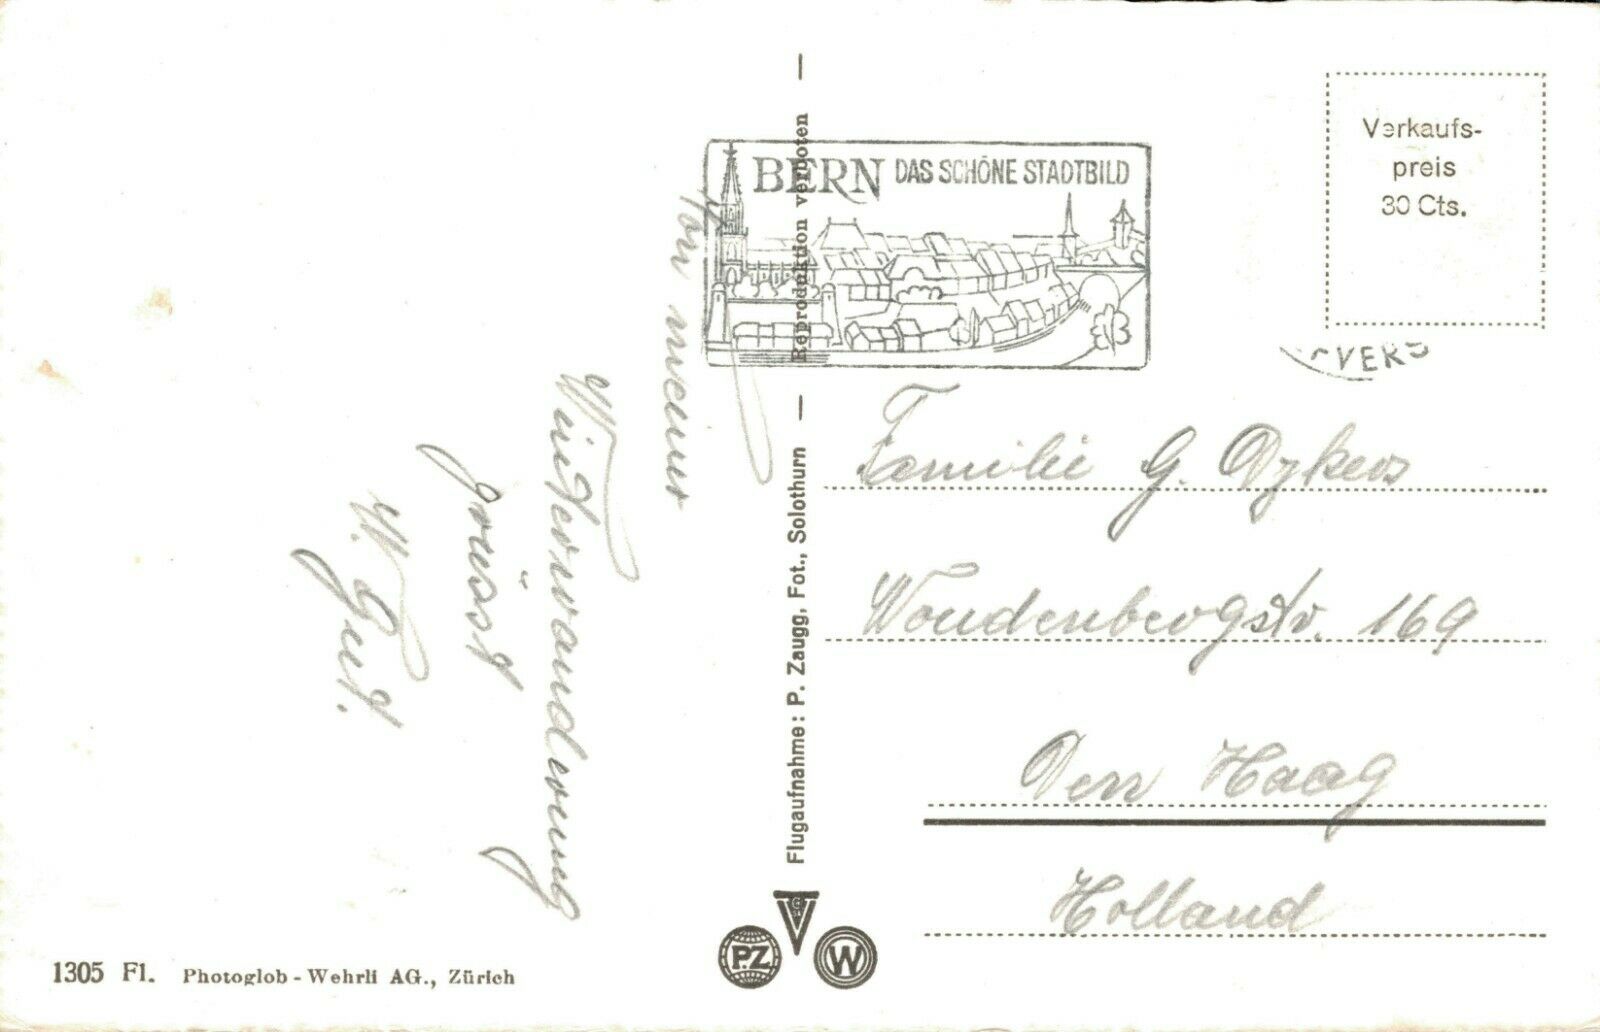 Von meiner
Winterwanderung
grüsst
W. Gut.
BERN DAS SCHÖNE STADTBILD
Verkaufs-
preis
30 Cts.
VERS
Familie G. Dykers
Woudenbergstr. 169
Den Haag
Holland
Flugaufnahme: P. Zaugg, Fot., Solothurn — Reproduktion verboten —
P.Z
G
V
W
1305 Fl. Photoglob-Wehrli AG., Zürich